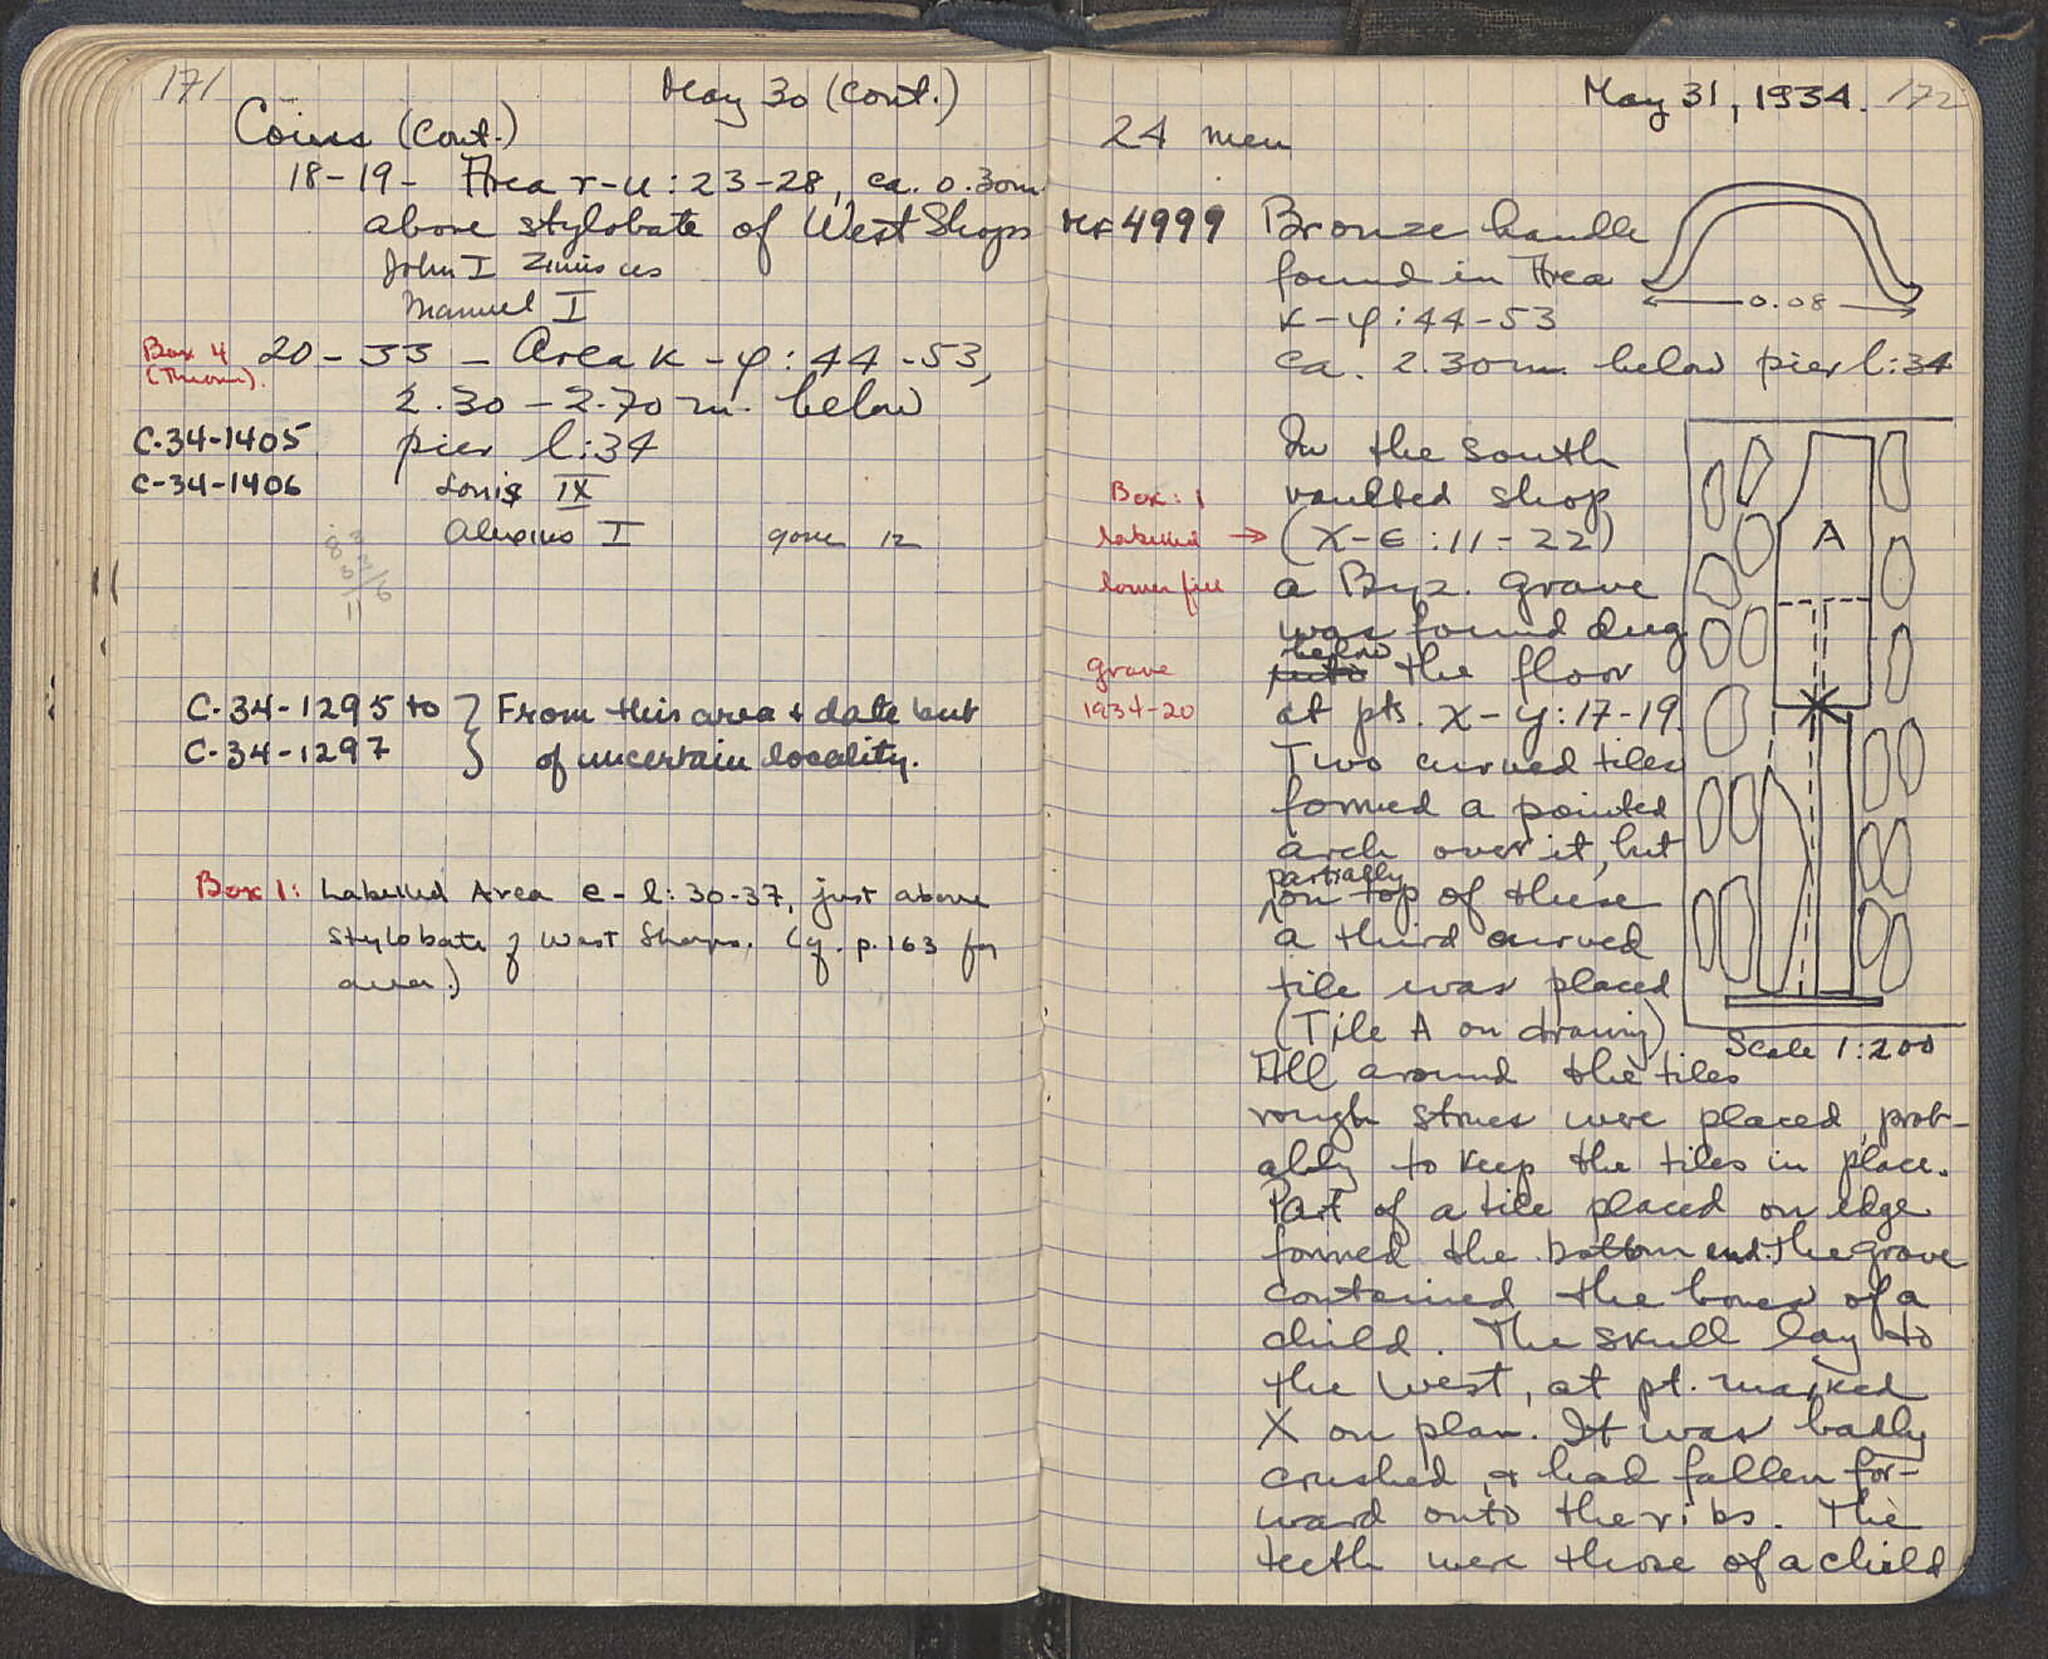 171
May 30 (Cont.)
Coins (Cont.)
18-19- Area r-u:23-28, ca. 0.30m.
above stylobate of West Shops
John I Zimisces
Manuel I
Box 4
20-33 - Area K-φ:44-53,
2.30-2.70 m. below
C-34-1405 pier l:34
C-34-1406 Louis IX
Alexius I gone 12
C-34-1295 to } From this area & date but
C-34-1297 } of uncertain locality.
Box 1: Labelled Area e-l:30-37, just above
stylobate of West Shops. (cf. p. 163 for
area.)
May 31, 1934. 172
24 men
MF 4999 Bronze handle
found in Area
K-φ:44-53
0.08
ca. 2.30 m. below pier l:34
In the south
Box: 1 vaulted shop
labelled → (X-E:11-22)
lower fill a Byz. grave
was found dug
below
into the floor
grave
1934-20 at pts. X-y:17-19.
Two curved tiles
formed a pointed
arch over it, but
partially
on top of these
a third curved
tile was placed
(Tile A on drawing)
A
Scale 1:200
All around the tiles
rough stones were placed, prob-
ably to keep the tiles in place.
Part of a tile placed on edge
formed the bottom end. The grave
contained the bones of a
child. The skull lay to
the West, at pt. marked
X on plan. It was badly
crushed, & had fallen for-
ward onto the ribs. The
teeth were those of a child